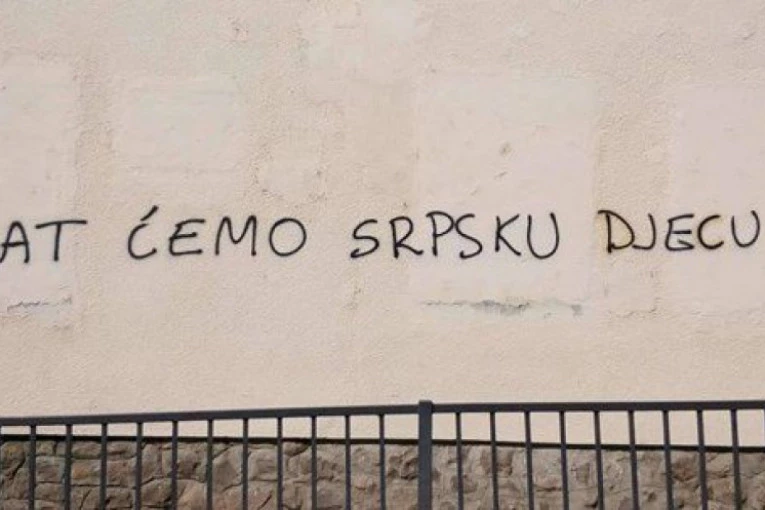 AT ĆEMO SRPSKU DJECU